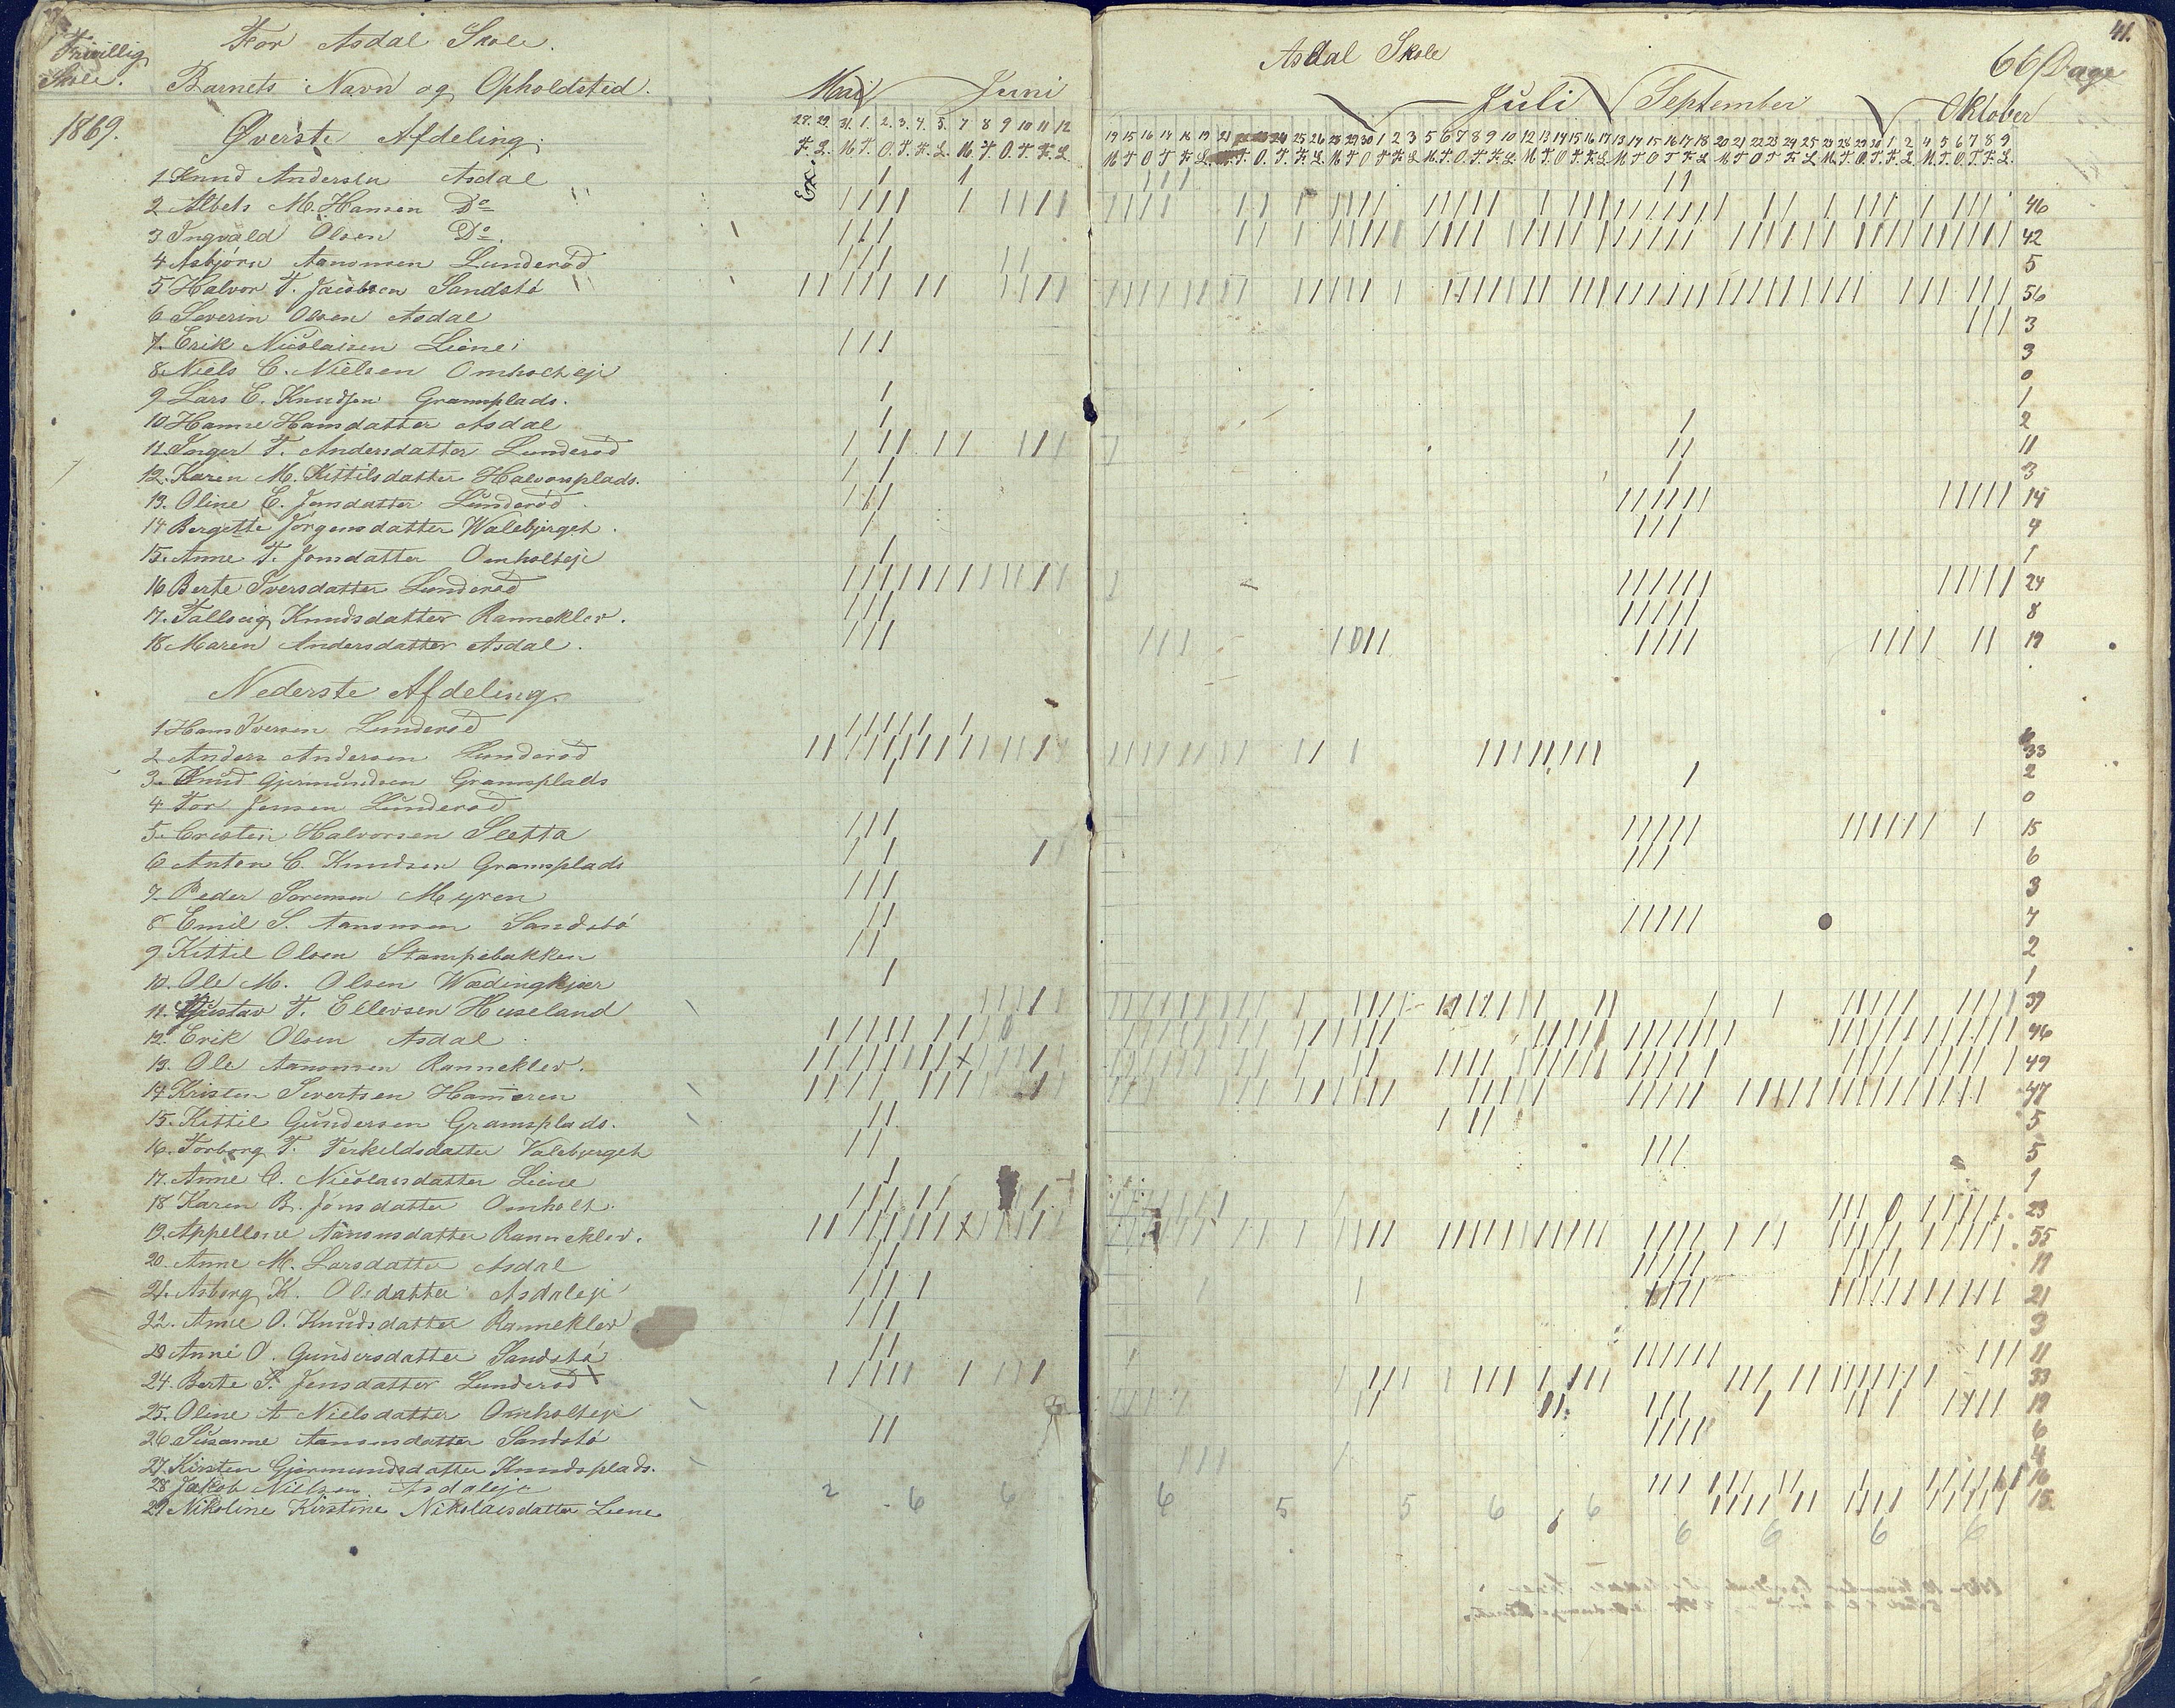 Frivillig Skole.
For Asdal Skole.
Barnets Navn og Opholdsted.
Mai Juni
1869.
Øverste Afdeling.
28. 29. 31. 1. 2. 3. 4. 5. 7 8 9 10 11 12
F. L. M. T. O. T. F. L. M. T. O. T. F. L.
Ex.
1 Knud Andersen Asdal
2 Albets M. Hansen Do
3 Ingvald Olsen Do.
4 Asbjørn Aanonsen Lunderød
5 Halvor T. Jacobsen Sandstø
6 Severin Olsen Asdal
7. Erik Nicolaisen Liene
8. Niels C. Nielsen Omholteje
9 Lars E. Knudsen Gramsplads.
10 Hanne Hansdatter Asdal
11. Inger T. Andersdatter Lunderød
12. Karen M. Kittilsdatter Halvorsplads.
13. Oline E. Jensdatter Lunderød
14 Bergette Jørgensdatter Walebjerget.
15. Anne T. Jonsdatter Omholteje
16 Berte Iversdatter Lunderød
17. Tallaug Knudsdatter Ranneklev.
18 Maren Andersdatter Asdal.
Nederste Afdeling.
1 Hans Iversen Lunderød
2 Anders Andersen Lunderød
3. Knud Gjermundsen Gramsplads
4 Tor Jensen Lunderød
5. Cristen Halvorsen Sletta
6 Anton C. Knudsen Gramsplads
7. Peder Sørensen Myren
8 Emil S. Aanonsen Sandstø
9 Kittil Olsen Stampebakken
10. Ole M. Olsen Wædingkjær
11. Gustav T. Ellevsen Huseland
12. Erik Olsen Asdal
13. Ole Aanonsen Ranneklev.
14 Kristen Sivertsen Hammeren
15. Kittil Gundersen Gramsplads.
16. Torborg T. Terkeldsdatter Valebjerget
17. Anne C. Nicolaisdatter Liene
18 Karen B. Jonsdatter Omholt.
19. Appellone Aanonsdatter Ranneklev.
20. Anne M. Larsdatter Asdal
21. Asborg K. Olsdatter Asdaleje
22. Anne O. Knudsdatter Ranneklev
23 Anne O. Gundersdatter Sandstø
24. Berte S. Jensdatter Lunderød
25. Oline A Nielsdatter Omholteje
26 Susanne Aanonsdatter Sandstø
27. Kirsten Gjermundsdatter Knudsplads.
28 Jakob Nielsen Asdaleje
29 Nikoline Kirstine Nikolaisdatter Liene
2 6 6
41.
Asdal Skole
66 Dage
Juli September Oktober
46
42
5
56
3
3
0
1
2
11
3
14
4
1
24
8
19
33
2
0
15
6
3
7
2
1
39
46
49
47
5
5
1
23
55
11
21
3
11
33
19
6
4
16
15
6 5 5 6 6 6
6 6 6 6